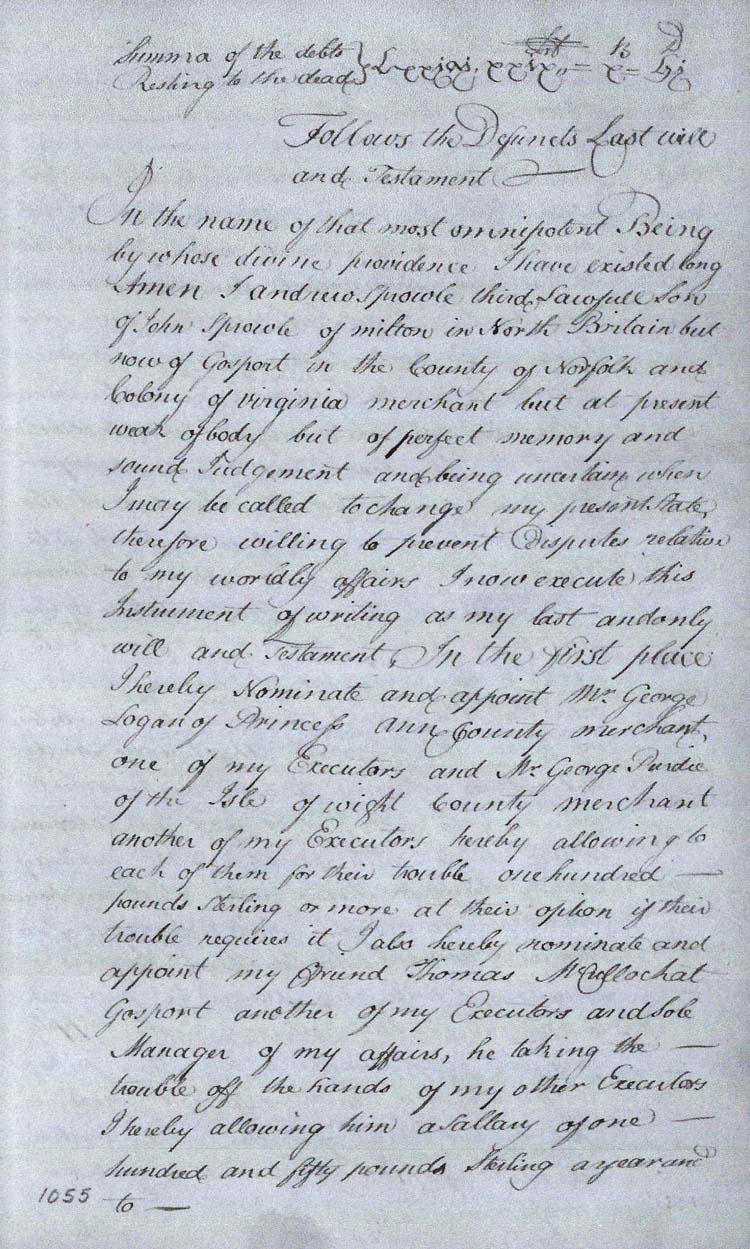 Summa of the debts
Resting to the dead
Follows the Defuncts Last will
and Testament
In the name of that most omnipotent Being
by whose divine providence I have existed long
Amen I andrew Sprowle third Lawfull Son
of John Sprowle of milton in North Britain but
now of Gosport in the County of Norfolk and
Colony of virginia merchant but at present
weak of body but of perfect memory and
sound Judgement and being uncertain when
I may be called to change my present State,
therefore willing to prevent Disputes relative
to my worldly affairs I now execute this
Instrument of writing as my last and only
will and Testament, In the first place
I hereby Nominate and appoint Mr. George
Logan of Princess Ann County merchant,
one of my Executors and Mr. George Purdie
of the Isle of wight County merchant
another of my Executors hereby allowing to
each of them for their trouble one hundred —
pounds Sterling or more at their option if their
trouble requires it I also hereby nominate and
appoint my friend Thomas McCulloch at
Gosport another of my Executors and Sole
Manager of my affairs, he taking the —
trouble off the hands of my other Executors
I hereby allowing him a Sallary of one —
hundred and fifty pounds Sterling a year and
to —
1055